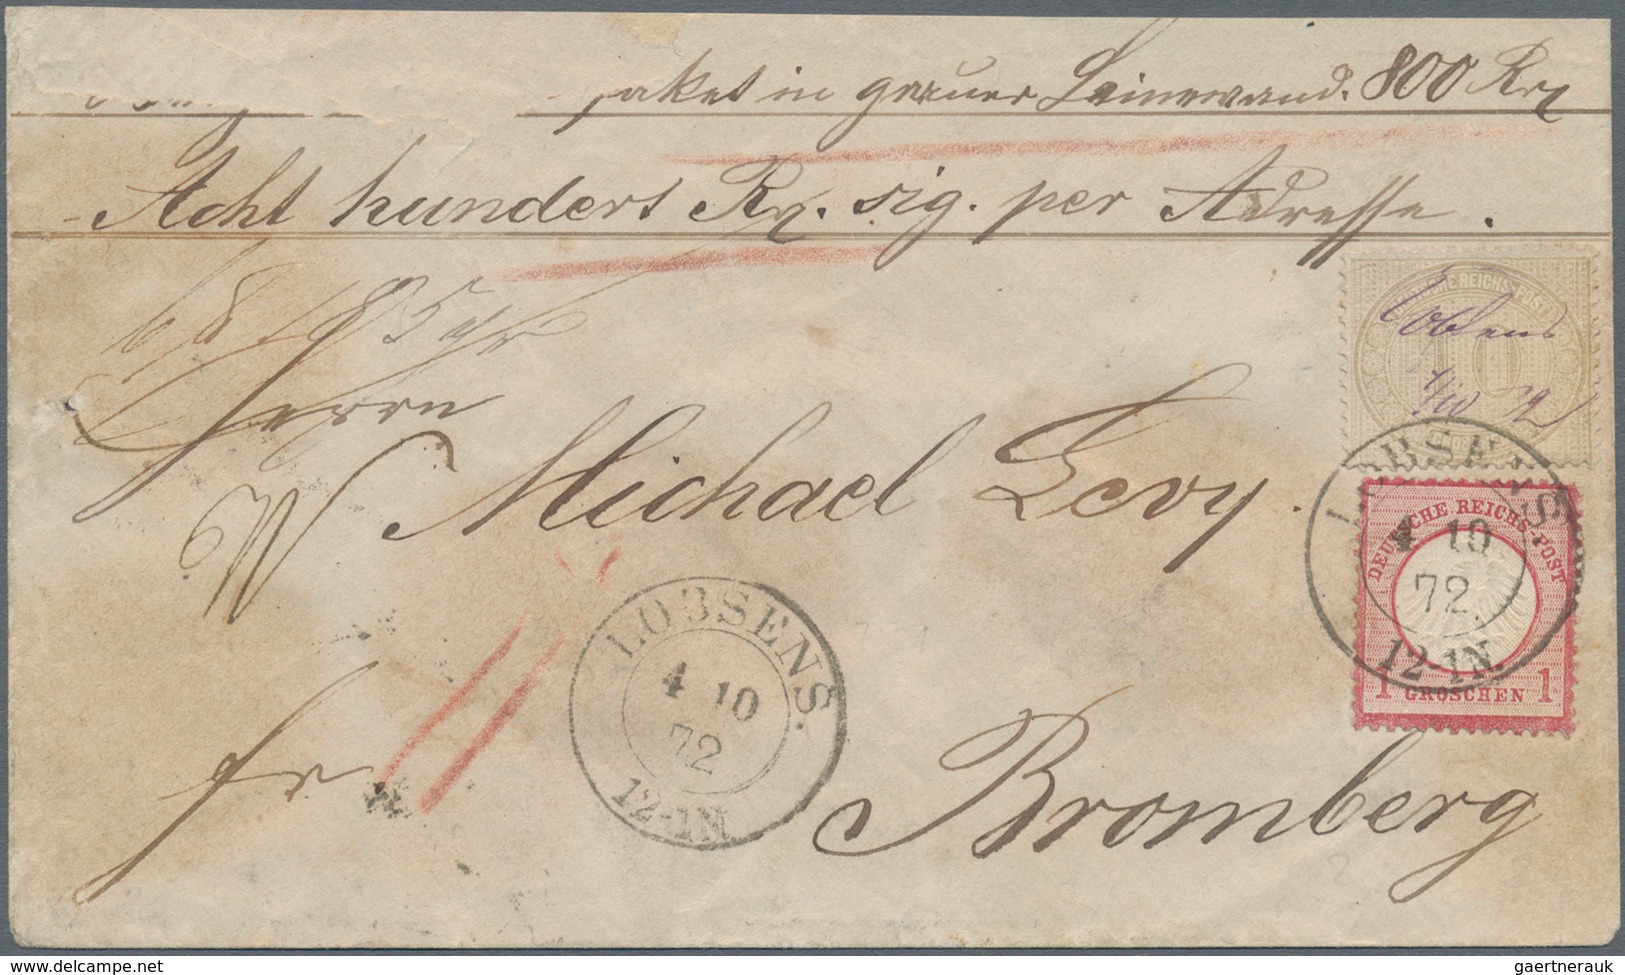 paket in grauer Leinewand. 800 Rℳ
Acht hundert Rℳ. sig. per Adresse.
Herrn
Michael Levy.
fr
Bromberg
LOBSENS.
4 10
72
12-1N
DEUTSCHE REICHS-POST
10
Lobsens
4/10 72
LOBSENS
4 10
72
12-1N.
DEUTSCHE REICHS-POST
1 GROSCHEN 1
www.delcampe.net
gaertnerauk